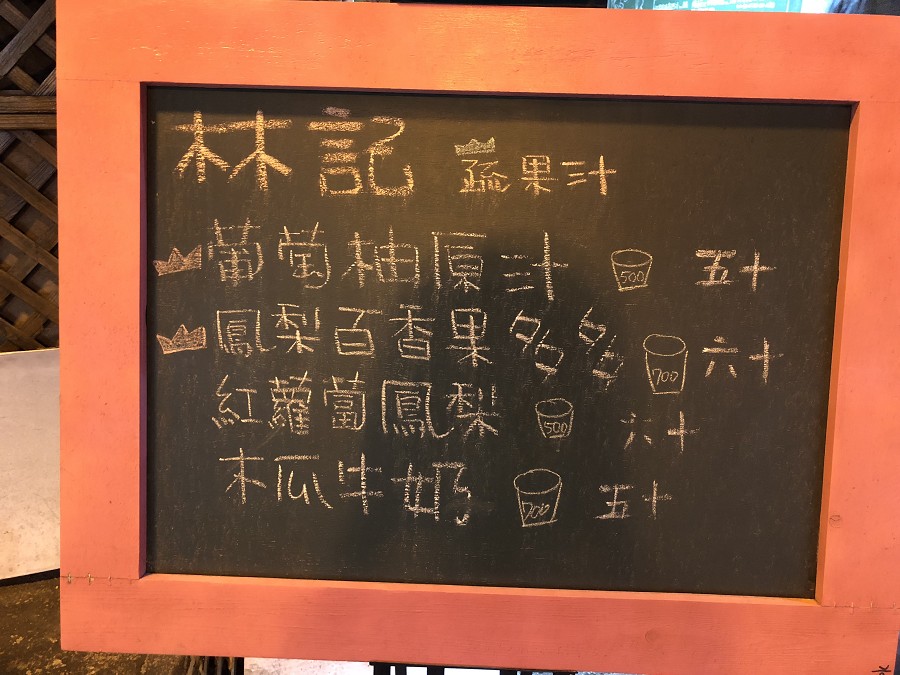 林記 蔬果汁
葡萄柚原汁 500 五十
鳳梨百香果多多 700 六十
紅蘿蔔鳳梨 500 六十
木瓜牛奶 700 五十